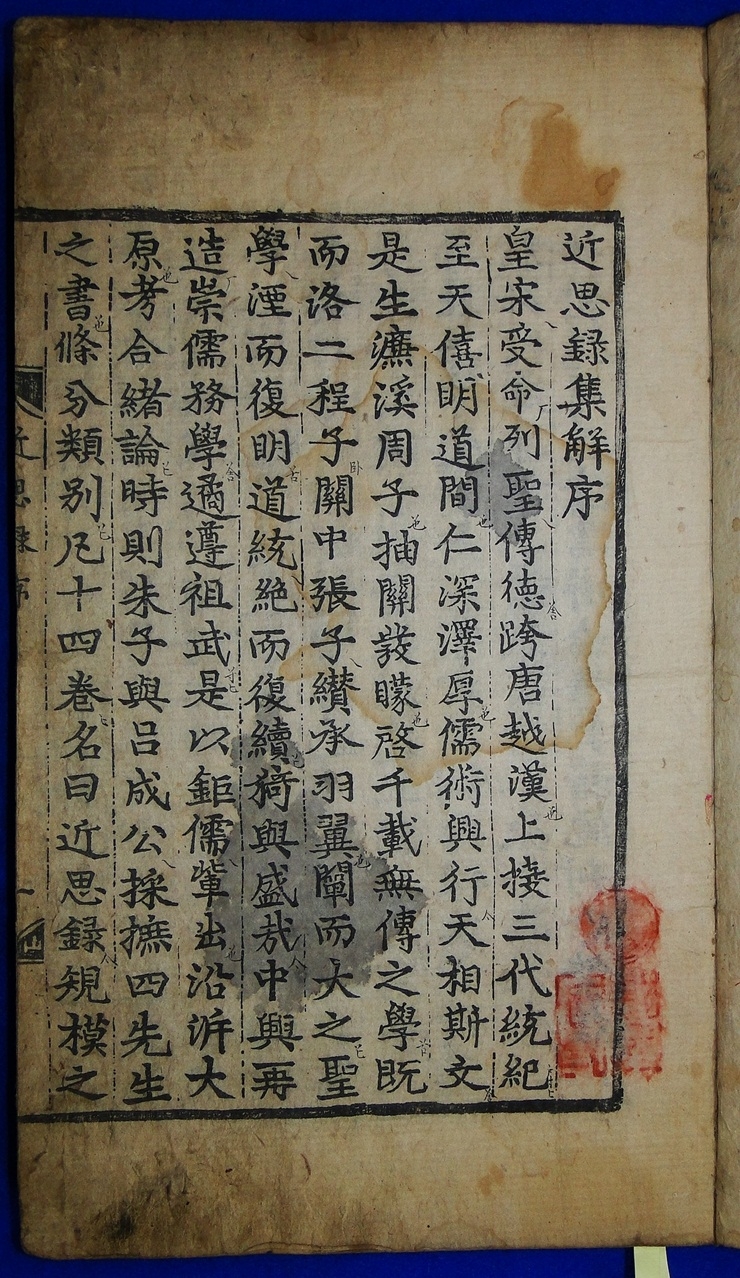 近思録集解序
皇宋受命列聖傳德跨唐越漢上接三代統紀
至天僖明道間仁深澤厚儒術興行天相斯文
是生濂溪周子抽關發矇啓千載無傳之學既
而洛二程子關中張子纉承羽翼闡而大之聖
學湮而復明道統絶而復續猗與盛哉中興再
造崇儒務學遹遵祖武是以鉅儒軰出沿泝大
原考合緒論時則朱子與呂成公採摭四先生
之書條分類別凡十四卷名曰近思録規模之
近思録序
一